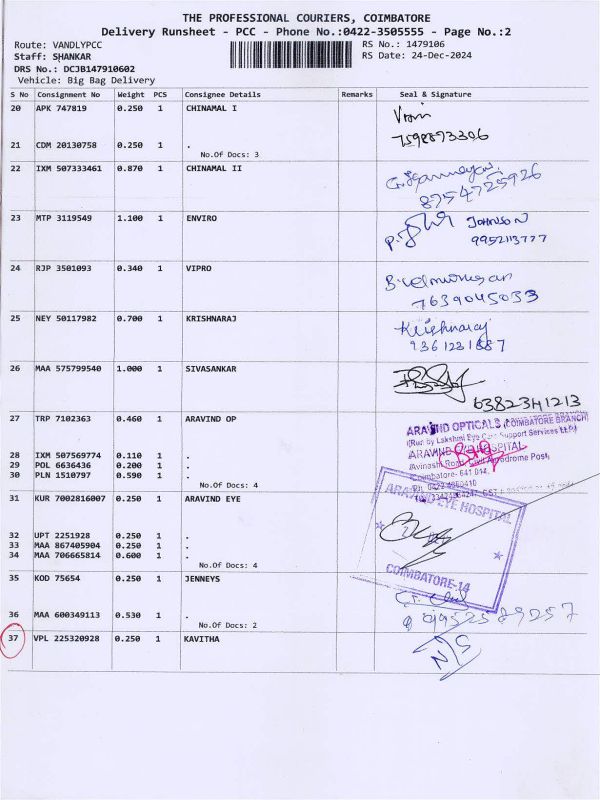 THE PROFESSIONAL COURIERS, COIMBATORE
Delivery Runsheet - PCC - Phone No.:0422-3505555 - Page No.:2
Route: VANDLYPCC
RS No.: 1479106
Staff: SHANKAR
RS Date: 24-Dec-2024
DRS No.: DCJB147910602
Vehicle: Big Bag Delivery
S No Consignment No Weight PCS Consignee Details Remarks Seal & Signature
20 APK 747819 0.250 1 CHINAMAL I
7598873306
21 CDM 20130758 0.250 1 .
No.Of Docs: 3
22 IXM 507333461 0.870 1 CHINAMAL II
8754725926
23 MTP 3119549 1.100 1 ENVIRO JOHNSON
9952113777
24 RJP 3501093 0.340 1 VIPRO
B.velmurugan
7639045033
25 NEY 50117982 0.700 1 KRISHNARAJ Krishnaraj
9361231887
26 MAA 575799540 1.000 1 SIVASANKAR
6382341213
27 TRP 7102363 0.460 1 ARAVIND OP
ARAVIND OPTICALS (COIMBATORE BRANCH)
(Run by Lakshmi Eye Care Support Services LLP)
ARAVIND EYE HOSPITAL
Avinashi Road, Civil Aerodrome Post,
Coimbatore- 641 014.
28 IXM 507569774 0.110 1 .
29 POL 6636436 0.200 1 .
30 PLN 1510797 0.590 1 .
No.Of Docs: 4
31 KUR 7002816007 0.250 1 ARAVIND EYE
ARAVIND EYE HOSPITAL
COIMBATORE-14
32 UPT 2251928 0.250 1 .
33 MAA 867405904 0.250 1 .
34 MAA 706665814 0.600 1 .
No.Of Docs: 4
35 KOD 75654 0.250 1 JENNEYS
36 MAA 600349113 0.530 1 .
No.Of Docs: 2
9952529257
37 VPL 225320928 0.250 1 KAVITHA
N/S